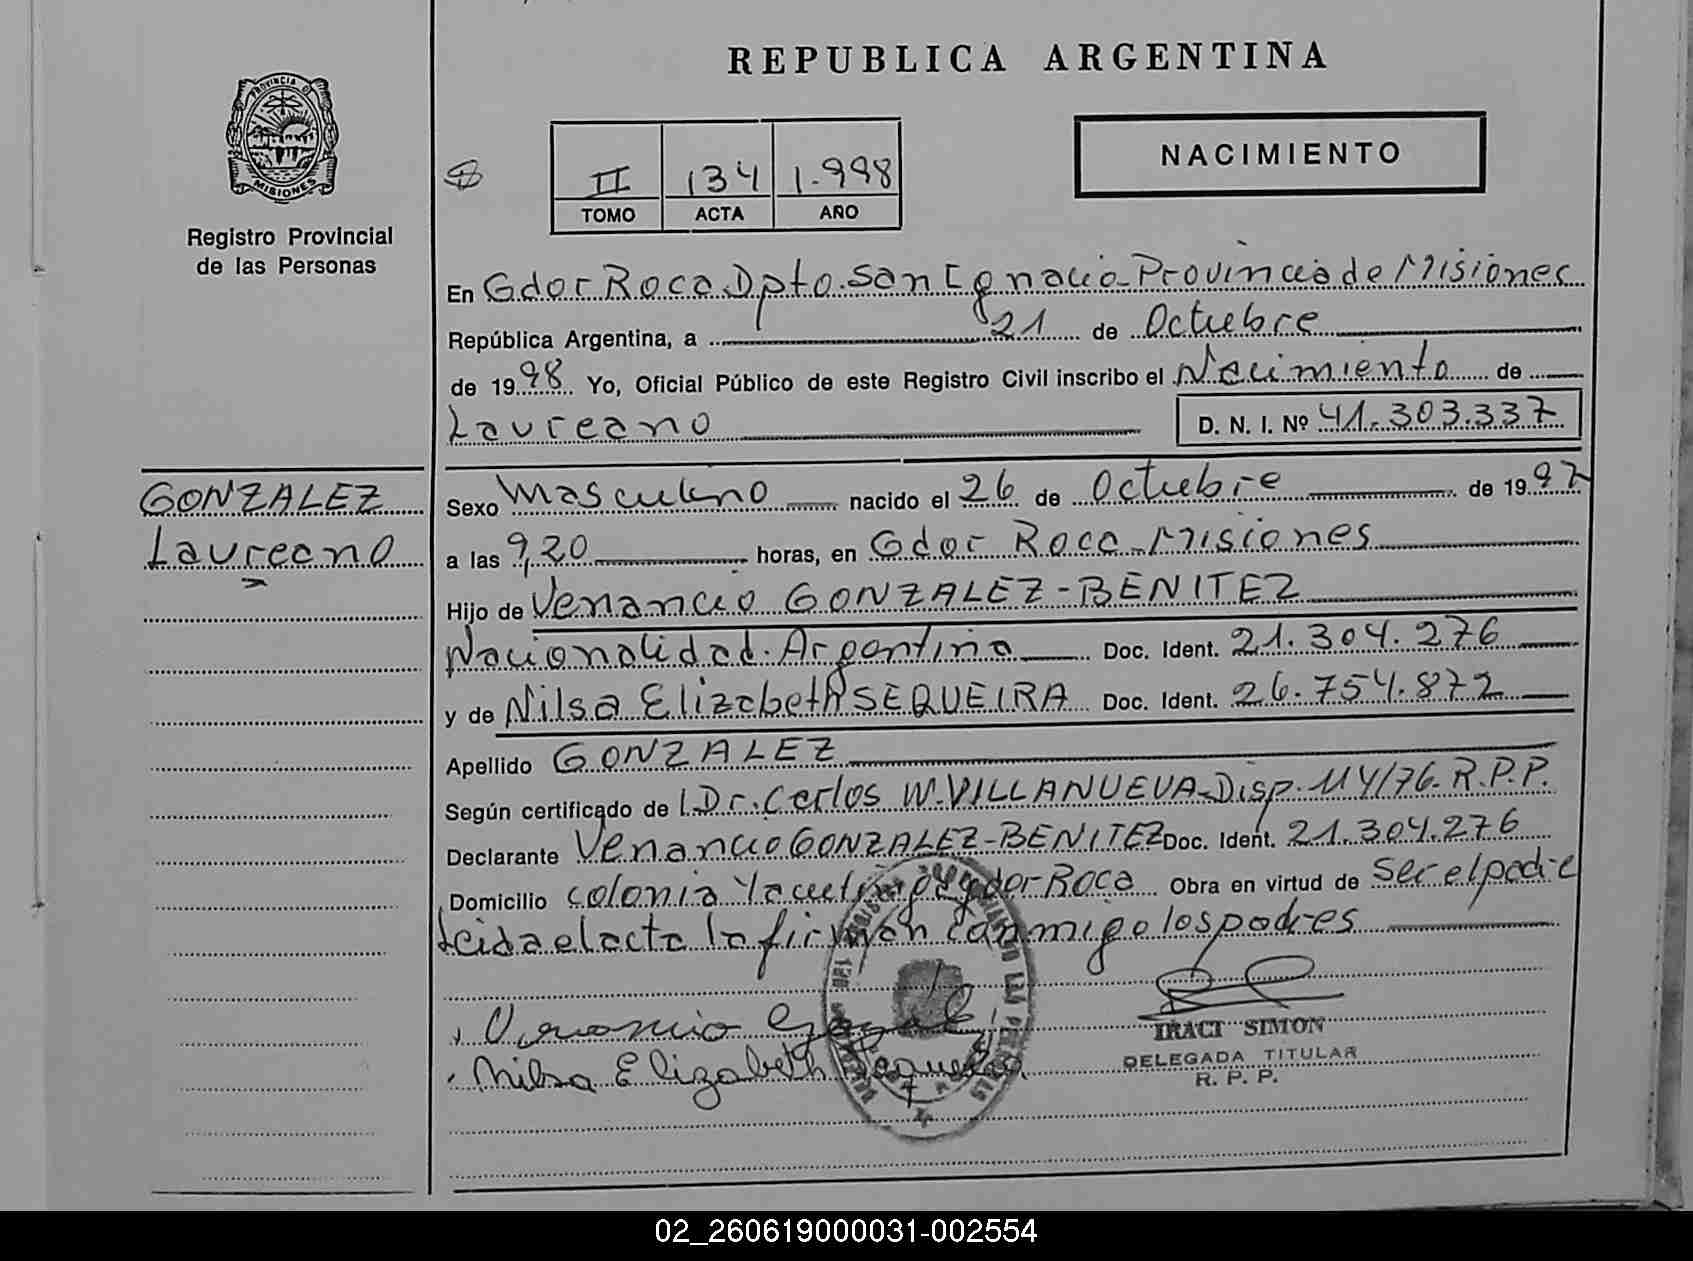 REPUBLICA ARGENTINA
PROVINCIA DE
MISIONES
Registro Provincial
de las Personas
II 134 1.998
TOMO ACTA AÑO
NACIMIENTO
En Gdor Roca Dpto. San Ignacio - Provincia de Misiones
República Argentina, a 21 de Octubre
de 1998 Yo, Oficial Público de este Registro Civil inscribo el Nacimiento de
Laureano D. N. I. Nº 41.303.337
GONZALEZ
Laureano
Sexo Masculino nacido el 26 de Octubre de 1997
a las 9,20 horas, en Gdor Roca - Misiones
Hijo de Venancio GONZALEZ - BENITEZ
Nacionalidad Argentina Doc. Ident. 21.304.276
y de Nilsa Elizabeth SEQUEIRA Doc. Ident. 26.754.872
Apellido GONZALEZ
Según certificado del Dr. Carlos W. VILLANUEVA - Disp. 114/76. R.P.P.
Declarante Venancio GONZALEZ - BENITEZ Doc. Ident. 21.304.276
Domicilio Colonia Gdor Roca Obra en virtud de ser el padre
Leida el acta la firman conmigo los padres
Nilsa Elizabeth Sequeira
IRACI SIMON
DELEGADA TITULAR
R. P. P.
02_260619000031-002554